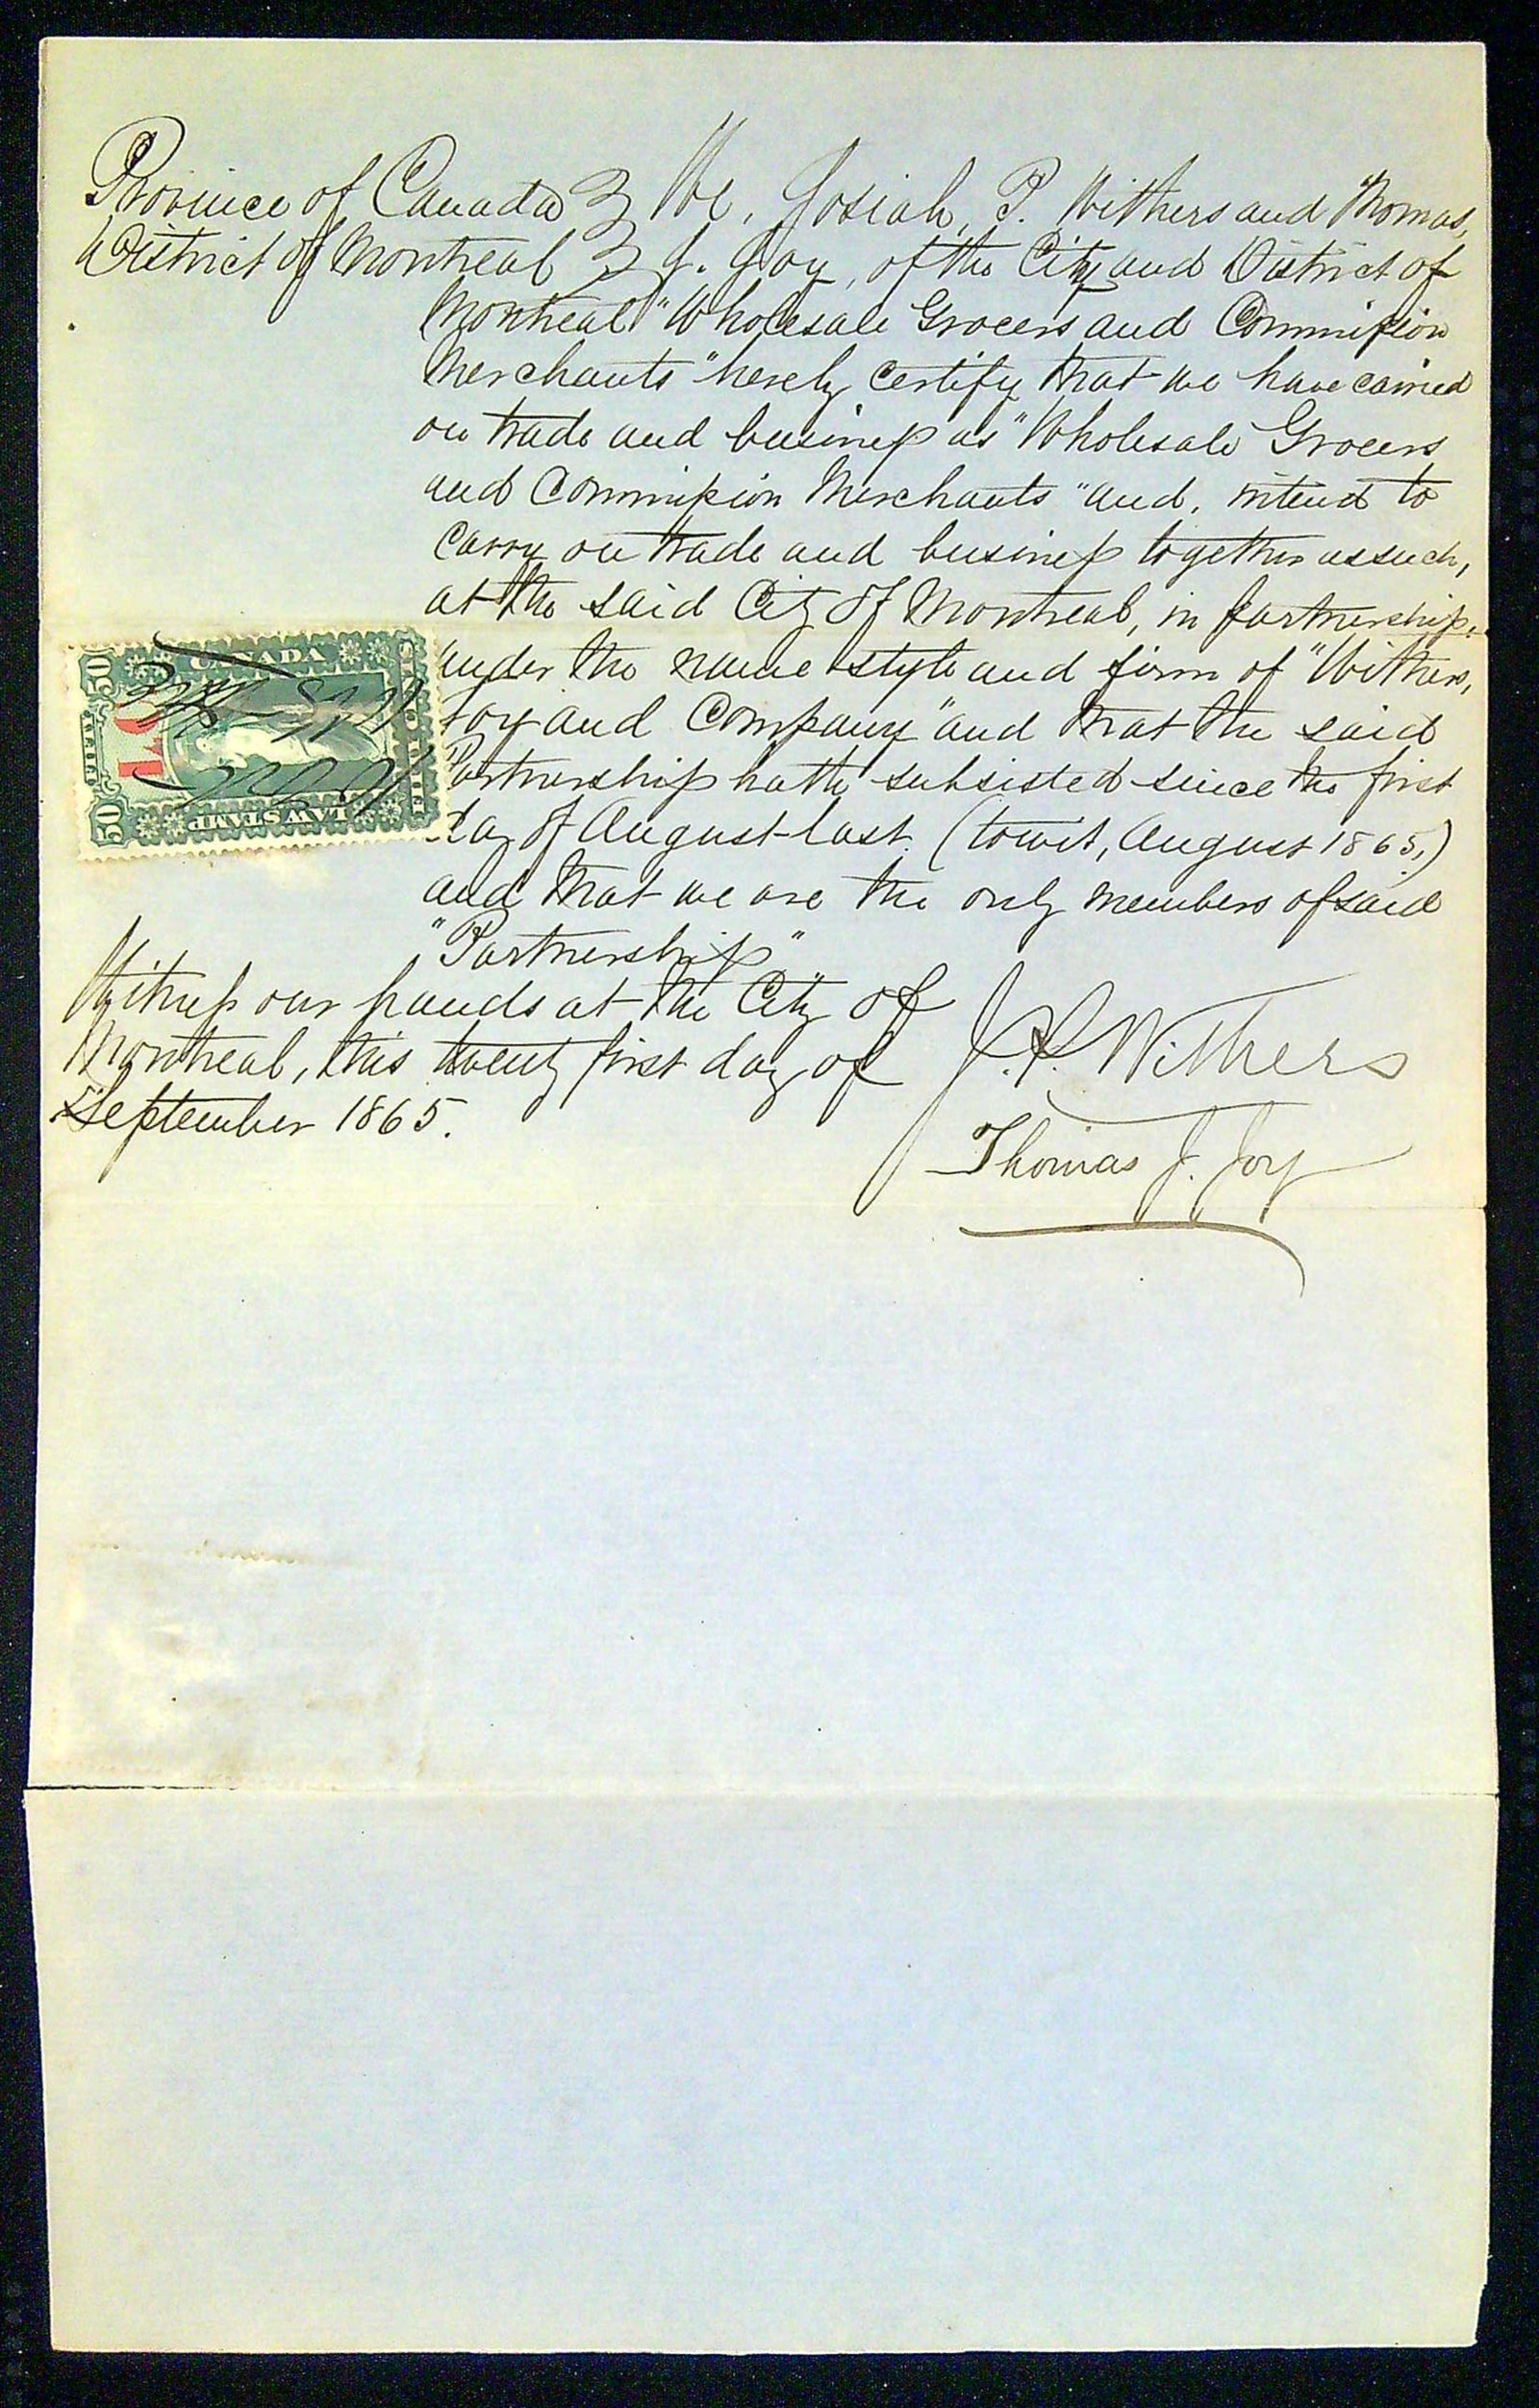 Province of Canada } We, Josiah, P. Withers and Thomas,
District of Montreal } J. Joy, of the City and District of
Montreal "Wholesale Grocers and Commission
Merchants" hereby certify that we have carried
on trade and business as "Wholesale Grocers
and Commission Merchants" and, intend to
carry on trade and business together as such,
at the said City of Montreal, in partnership,
under the name style and firm of "Withers,
Joy and Company" and that the said
Partnership hath subsisted since the first
day of August last. (towit, August 1865,)
and that we are the only members of said
"Partnership"
Witness our hands at the City of
Montreal, this twenty first day of
September 1865.
J. P. Withers
Thomas J. Joy
CANADA
50
50
LAW STAMP